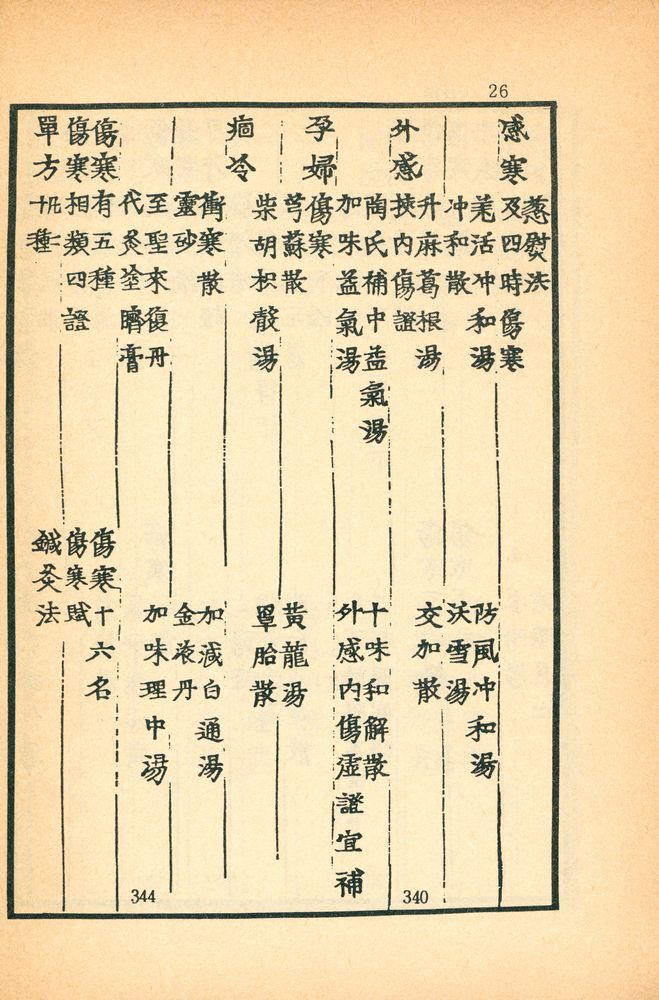 26
葱熨法
感寒及四時傷寒
羌活冲和湯 防風冲和湯
冲和散 沃雪湯
升麻葛根湯 交加散
外感挾內傷證
陶氏補中益氣湯 十味和解散
加味益氣湯 外感內傷虛證宜補
孕婦傷寒
芎蘇散 黃龍湯
柴胡枳殼湯 罩胎散
痼冷
衝寒散 加減白通湯
靈砂 金液丹
至聖來復丹 加味理中湯
代灸塗臍膏
傷寒有五種 傷寒十六名
傷寒相類四證 傷寒賦
單方 鍼灸法
340
344